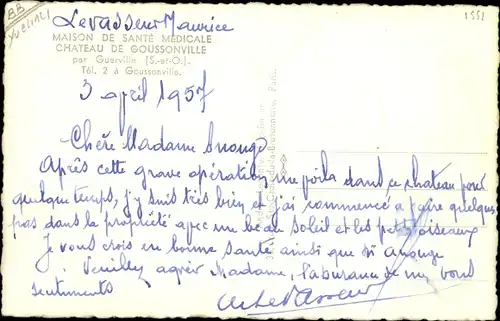 BB
YVELINES
1552
Levasseur Maurice
MAISON DE SANTÉ MÉDICALE
CHATEAU DE GOUSSONVILLE
par Guerville (S.-et-O.)
Tél. 2 à Goussonville.
3 april 1957
Chère Madame
Après cette grave opération me voila dans ce chateau pour
quelque temps, j'y suis très bien et j'ai commencé a faire quelques
pas dans la propriété avec un beau soleil et les petits oiseaux
Je vous crois en bonne santé ainsi que
Veuillez agréer Madame, l'assurance de mes bons
sentiments